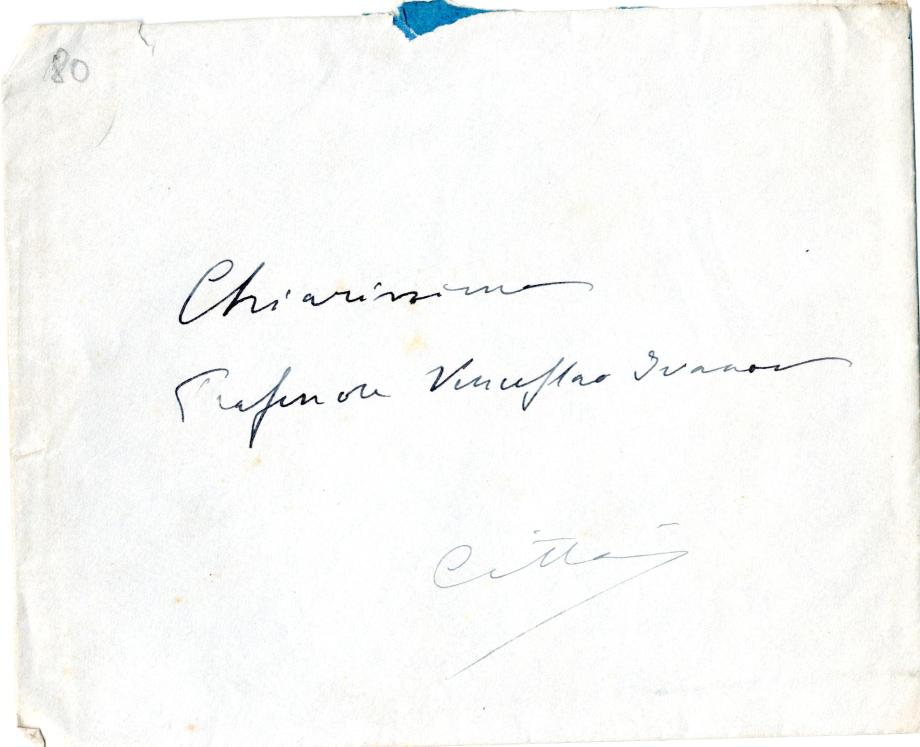 80
Chiarissimo
Professore Venceslao Ivanov
Città